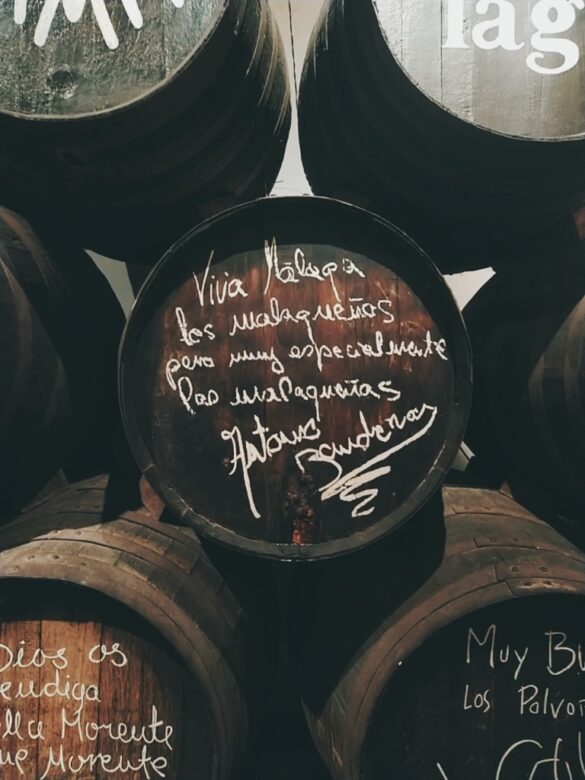 lag
Viva Málaga
los malagueños
pero muy especialmente
las malagueñas
Antonio
Banderas
Dios os
endiga
lla Morente
ue Morente
Muy Bu
Los Polvor